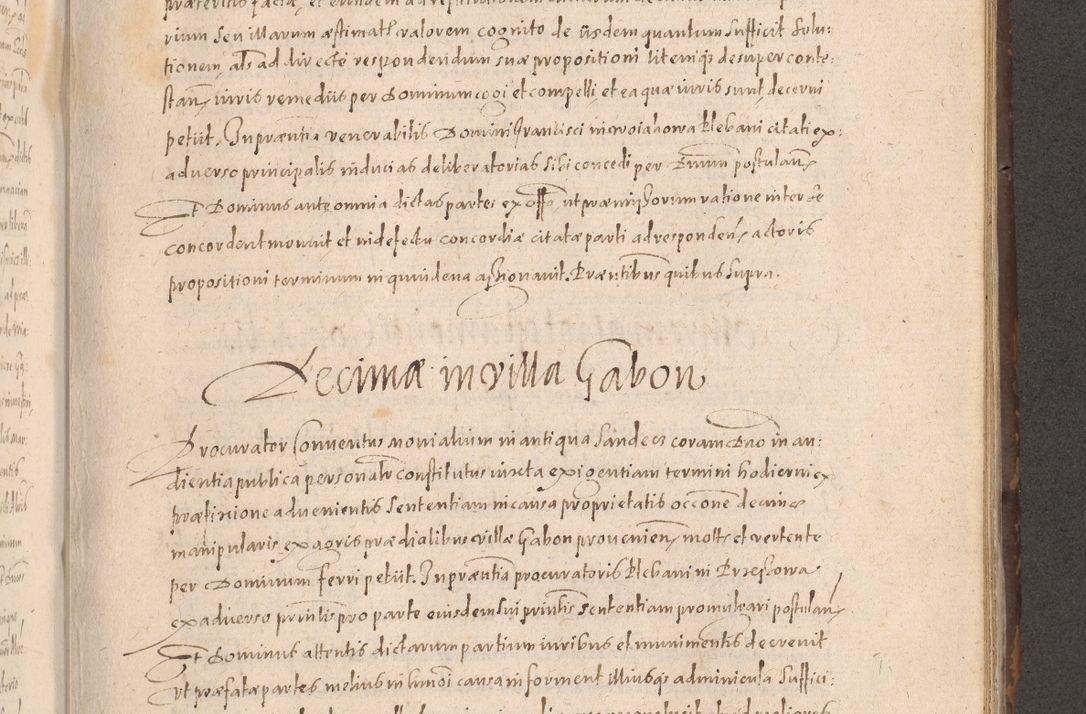 rium seu illarum æstimatr valorem cognito de iisdem quantum sufficit solu:
tionem, als ad directe respondendum suæ propositioni litemque desuper conte:
stan, iuris remediis per Dominum cogi et compelli, et ea quæ iuris sunt decerni
petiit. In præsentia venerabilis Domini Francisci in Croiahowa Plebani citati ex:
adverso principalis inducias deliberatorias sibi concedi per Dnum postulan
Et Dominus ante omnia dictas partes ex offo, ut præmissorum ratione inter se
concordent monuit et in defectu concordiæ citatæ parti ad responden actoris
propositioni terminum in quindena assignavit. Præsentibus quibus supra.
Decimæ in villa Gabon
Procurator Conventus monialium in antiqua Sandecz coram Dno in au:
dientia publica personaltr constitutus iuxta exigentiam termini hodierni ex
præfixione advenientis sententiam in causa proprietatis occone decimæ
manipularis ex agris prædialibus villæ Gabon provenien, mottæ et vertente
per Dominum ferri petiit. In præsentia procuratoris Plebani in Przeszowa
ex adverso prinlis pro parte eiusdem sui prinlis sententiam promulgari postulan
Et Dominus attentis dictarum partium iuribus et munimentis decrevit
ut præfatæ partes melius in hmoi causa informent illiusque adminicula suffici: